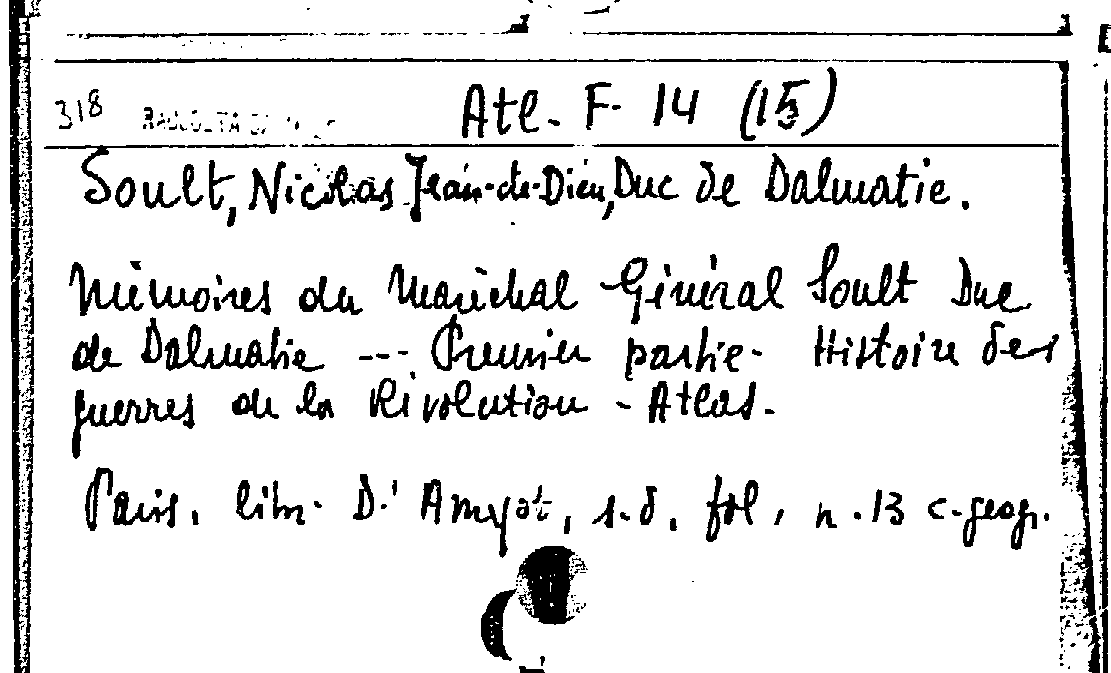 318 RACCOLTA Atl. F. 14 (15)
Soult, Nicolas Jean-de-Dieu, Duc de Dalmatie.
Mémoires du Maréchal Général Soult Duc
de Dalmatie --- Premier partie - Histoire des
guerres de la Révolution - Atlas.
Paris. libr. D'Amyot, s.d. fol, n. 13 c. geogr.